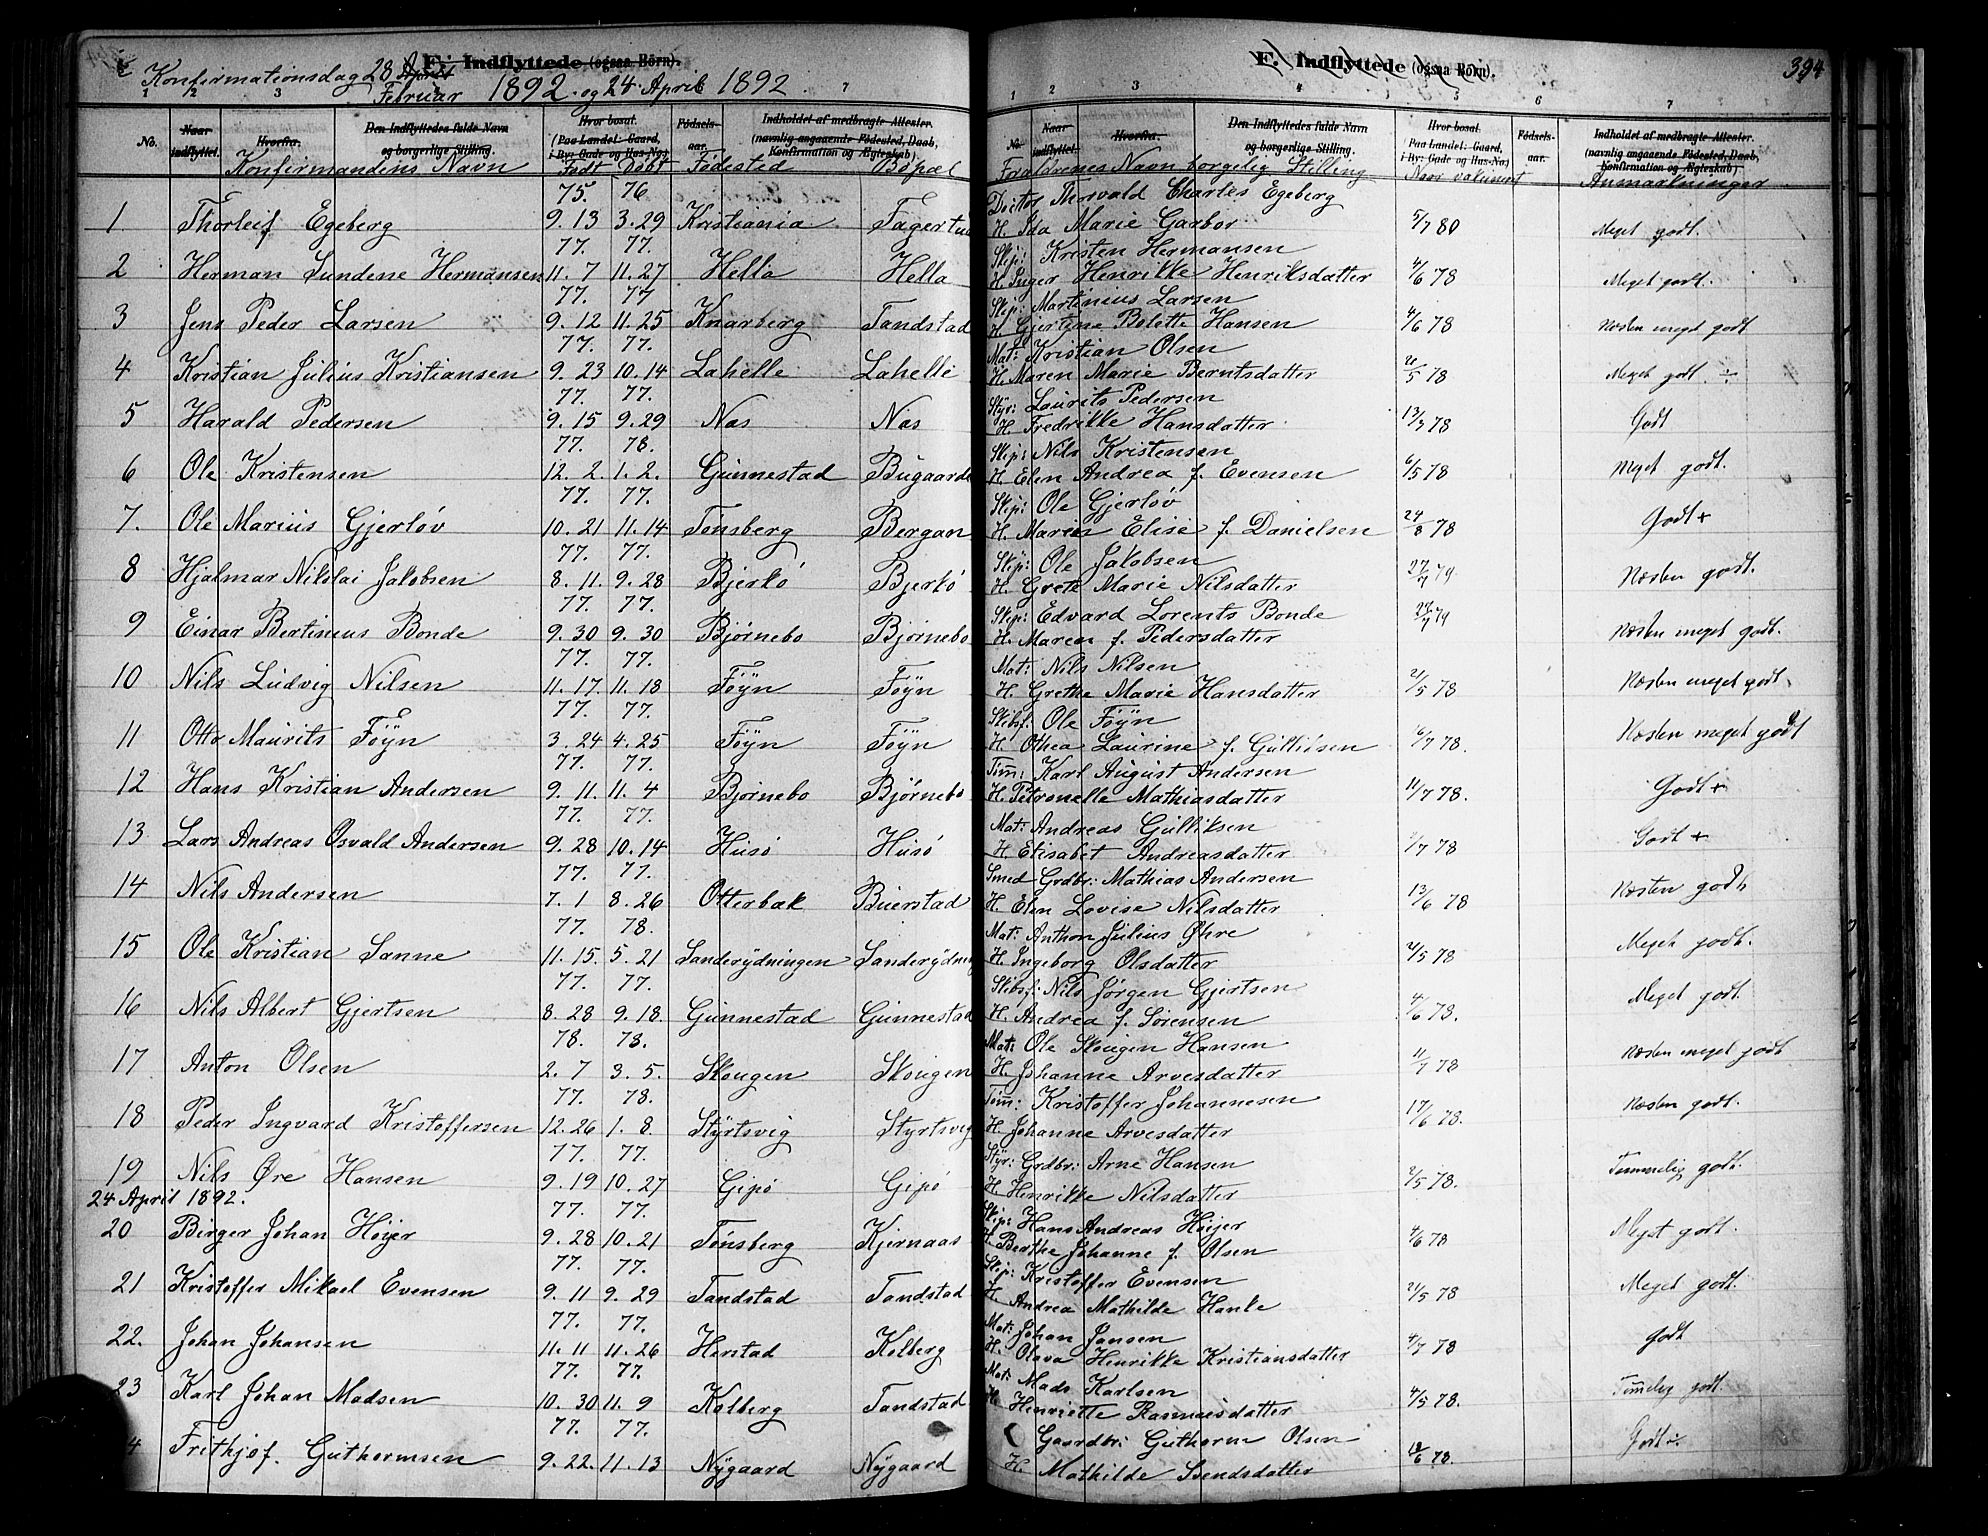 E. Indflyttede (ogsaa Börn).
Konfirmationsdag 28 April
Februar 1892 og 24 April 1892
1 2 3 7
No. Naar indflyttet. Hvorfra. Den Indflyttedes fulde Navn og borgerlige Stilling. Hvor bosat. (Paa Landet: Gaard, i By: Gade og Hus-No.) Födsels-aar. Indholdet af medbragte Attester. (navnlig angaaende Födested, Daab, Konfirmation og Ægteskab)
Konfirmandens Navn Født Døbt Fødested Bopæl
75. 76
1 Thorleif Egeberg 9. 13 3. 29 Kristiania
77. 77.
2 Herman Lundene Hermansen 11. 7 11. 27 Hella Hella
77. 77
3 Jens Peder Larsen 9. 12 11. 25 Knarberg Tandstad
77. 77.
4 Kristian Julius Kristiansen 9. 23 10. 14 Lahelle Lahelle
77. 77.
5 Harald Pedersen 9. 15 9. 29 Nas Nas
77. 78.
6 Ole Kristensen 12. 2 1. 2. Gunnestad Bugaarde
77. 77.
7. Ole Marius Gjerløv 10. 21 11. 14 Tønsberg Bergan
77. 77.
8 Hjalmar Nikolai Jakobsen 8. 11 9. 28 Bjerkø Bjerkø
77. 77.
9 Einar Bertinius Bonde 9. 30 9. 30 Bjørnebo Bjørnebo
77. 77.
10 Nils Ludvig Nilsen 11. 17 11. 18 Føyn Føyn
77. 77.
11 Otto Maurits Føyn 3. 24 4. 25 Føyn Føyn
77. 77.
12 Hans Kristian Andersen 9. 11 11. 4 Bjørnebo Bjørnebo
77. 77.
13 Lars Andreas Osvald Andersen 9. 28 10. 14 Husø Husø
77. 77.
14 Nils Andersen 7. 1 8. 26 Otterbæk Buerstad
77. 78.
15 Ole Kristian Sanne 11. 15. 5. 21 Sanderydningen Sanderydning
77. 77.
16 Nils Albert Gjertsen 8. 28 9. 18. Gunnestad Gunnestad
78. 78.
17 Anton Olsen 2. 7 3. 5. Skougen Skougen
77. 78.
18 Peder Ingvard Kristoffersen 12. 26 1. 8. Styrtsvig Styrtsvig
77. 77.
19 Nils Øre Hansen 9. 19 10. 27 Gipø Gipø
24 April 1892.
77. 77.
20 Birger Johan Høyer 9. 28 10. 21 Tønsberg Kjernaas
77. 77.
21 Kristoffer Mikael Evensen 9. 11 9. 29 Tandstad Tandstad
77. 77.
22. Johan Johansen 11. 11 11. 26 Herstad Kolberg
77. 77.
23 Karl Johan Madsen 10. 30 11. 9 Kolberg Tandstad
77. 77.
4 Frithjof Guthormsen 9. 22. 11. 13 Nygaard Nygaard
E. Indflyttede (ogsaa Börn). 394
1 2 3 4 5 6 7
No. Naar indflyttet. Hvorfra. Den Indflyttedes fulde Navn og borgerlige Stilling. Hvor bosat. (Paa Landet: Gaard, i By: Gade og Hus-No.) Födsels-aar. Indholdet af medbragte Attester. (navnlig angaaende Födested, Daab, Konfirmation og Ægteskab)
Forældrenes Navn borgelig Stilling Naar vakcineret Anmærkninger
Doctor Thorvald Charles Egeberg
H. Ida Marie Garbor 5/7 80 Meget godt.
Skip: Kristen Hermansen
H. Inger Henrikke Henriksdatter 4/6 78 Meget godt.
Skip: Martinius Larsen
H. Gjertine Bolette Hansen 4/6 78 Næsten meget godt
Mat: Kristian Olsen
H. Maren Marie Berntsdatter 78 Meget godt. ÷
Styr: Laurits Pedersen
H. Fredrikke Hansdatter 78 Godt
Skip: Nils Kristensen
H. Elen Andrea f. Evensen 6/5 78 Meget godt.
Skip: Ole Gjerløv
H. Maren Elise f. Danielsen 24/8 78 Godt +
Skip: Ole Jakobsen
H. Grete Marie Nilsdatter 27/7 79. Næsten godt.
Skip: Edvard Lorents Bonde
H. Maren f. Pedersdatter 27/7 79 Næsten meget godt.
Mat: Nils Nilsen
H. Grethe Marie Hansdatter 2/5 78 Næsten meget godt.
Skibsf. Ole Føyn
H. Othea Laurine f. Gulliksen 78. Næsten meget godt
Tøm: Karl August Andersen
H. Petronelle Mathiasdatter 11/7 78. Godt +
Mat: Andreas Gulliksen
H. Elisabet Andreasdatter 78 Godt +
Smed Grdbr: Mathias Andersen
H. Elen Lovise Nilsdatter 13/6 78 Næsten godt
Mat: Anthon Julius Øhre
H. Ingeborg Olsdatter 2/5 78 Meget godt.
Skibsf: Nils Jørgen Gjertsen
H. Andrea f. Sørensen 4/6 78. Meget godt.
Mat: Ole Skougen Hansen
H. Johanne Arvesdatter 11/7 78 Næsten meget godt
Tøm: Kristoffer Johannesen
H. Johanne Arvesdatter 17/6 78. Næsten godt.
Styr: Grdbr: Arne Hansen
H. Henrikke Nilsdatter 2/5 78. Temmelig godt.
Skip: Hans Andreas Høyer
H. Berthe Johanne f. Olsen 4/6 78 Meget godt.
Skip: Kristoffer Evensen
H. Andrea Mathilde Hanke 2/5 78 Meget godt.
Mat: Johan Jansen
H. Olava Henrikke Kristiansdatter 4/7 78 Godt
Mat: Mads Karlsen
H. Henriette Rasmusdatter 4/5 78. Temmelig godt.
Gaardbr: Guthorm Olsen
H. Mathilde Svendsdatter 78. Godt ÷